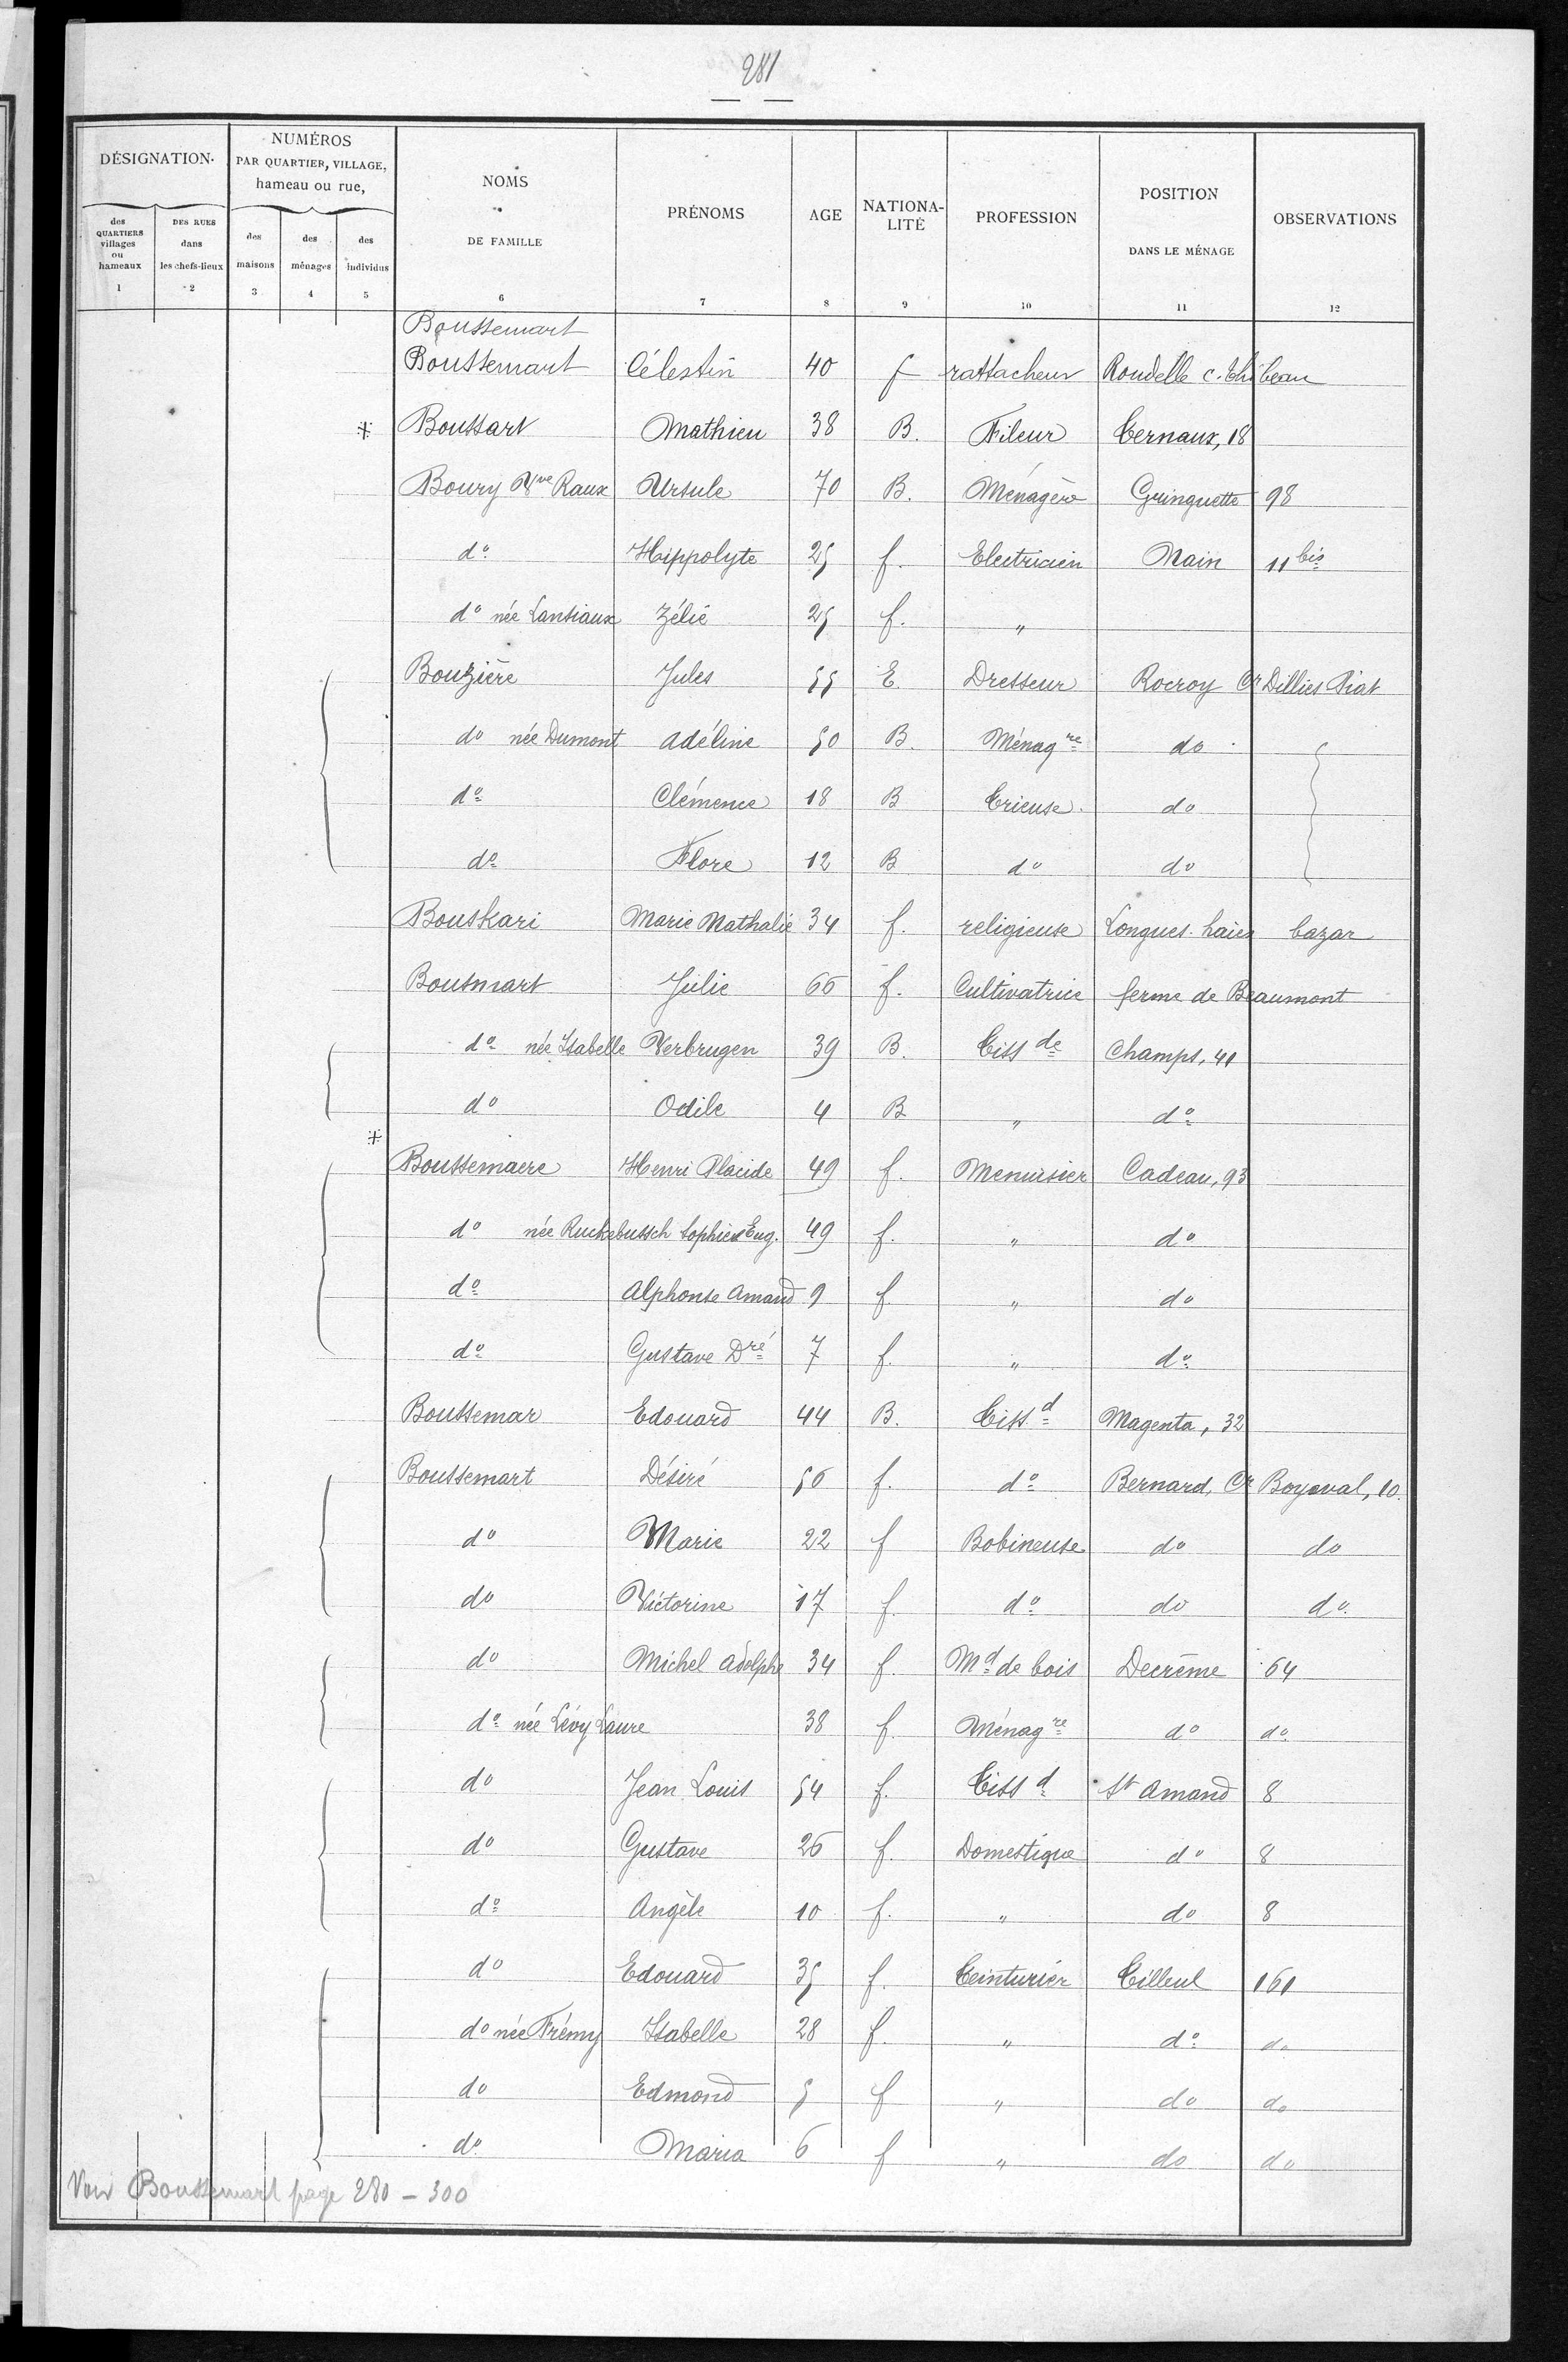 281
DÉSIGNATION.
NUMÉROS PAR QUARTIER, VILLAGE, hameau ou rue,
NOMS DE FAMILLE
PRÉNOMS
AGE
NATIONA-LITÉ
PROFESSION
POSITION DANS LE MÉNAGE
OBSERVATIONS
des QUARTIERS villages ou hameaux
DES RUES dans les chefs-lieux
des maisons
des ménages
des individus
1 2 3 4 5 6 7 8 9 10 11 12
Boussemart
Boussemart Célestin 40 f rattacheur Rondelle c. Thibeau
Boussart Mathieu 38 B. Fileur Cernaux, 18
Boury Vve Raux Ursule 70 B. Ménagère Gringuette 98
do Hippolyte 25 f. Electricien Nain 11 bis
do née Lansiaux Zélie 25 f. "
Bouzière Jules 55 E. Dresseur Rocroy Cr Dillies Piat
do née Dumont Adéline 50 B. Ménagre do
do Clémence 18 B Trieuse do
do Flore 12 B do do
Bouskari Marie Nathalie 34 f. religieuse Longues haies bazar
Bousmart Julie 66 f. Cultivatrice ferme de Beaumont
do née Isabelle Verbrugen 39 B. Tissde Champs, 41
do Odile 4 B " do
Boussemaere Henri Placide 49 f. Menuisier Cadeau, 93
do née Ruckebussch Sophie Eug. 49 f. " do
do Alphonse Amand 9 f " do
do Gustave Dré 7 f. " do
Boussemar Edouard 44 B. Tissd Magenta, 32
Boussemart Désiré 56 f. do Bernard, Cr Boyaval, 10.
do Marie 22 f Bobineuse do do
do Victorine 17 f. do do do
do Michel Adolphe 34 f. Md de bois Decrême 64
do née Lévy Laure 38 f. Ménagre do do
do Jean Louis 54 f. Tissd St Amand 8
do Gustave 26 f. Domestique do 8
do Angèle 10 f. " do 8
do Edouard 35 f. Teinturier Tilleul 161
do née Frémy Isabelle 28 f. " do do
do Edmond 5 f " do do
do Maria 6 f " do do
Voir Boussemart page 280 – 300